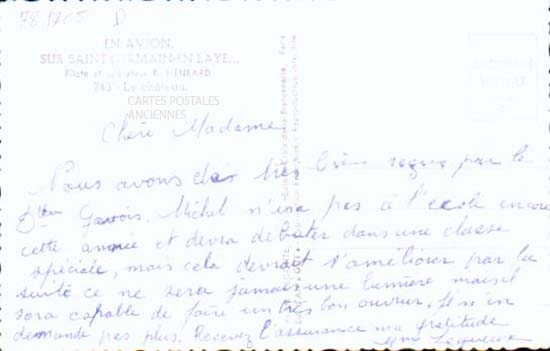 781705 D
EN AVION,
SUR SAINT GERMAIN-EN LAYE...
Pilote et opérateur R. HENRARD
743 - Le château.
CARTES POSTALES
ANCIENNES
Chère Madame,
Nous avons été très bien reçus par le
Michel n'ira pas à l'ecole encore
cette année et devra débuter dans une classe
spéciale, mais cela devrait s'améliorer par la
suite ce ne sera jamais une lumière mais il
sera capable de faire un très bon ouvrier. Je n'en
demande pas plus. Recevez l'assurance ma gratitude